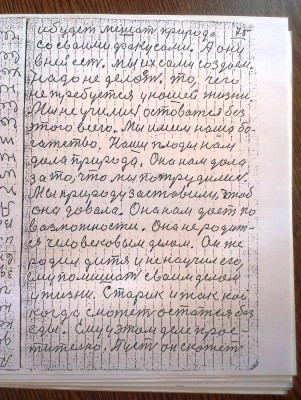 75
и будет мешат природа
со своими фокусами. А они
в ней ест. мы их сами создаем,
надо не делат то, чего
не требуется у нашей жизни.
Мы не училис остоватся без
этого всего. Мы имеем наше бо-
гатство. Наши плоды нам
дала природа. Она нам дала
за то, что мы потрудилис.
Мы природу заставили, чтоб
она довала. Она нам дает по
возможности. Она не родит-
ся человековым делом. Он же
родил дитя и не научил его
ему помешат своим делом
у жизни. Старик и то как кой
когда сможет остатся без
еды. Ему у этом деле прос-
тително. Пуст он скажет